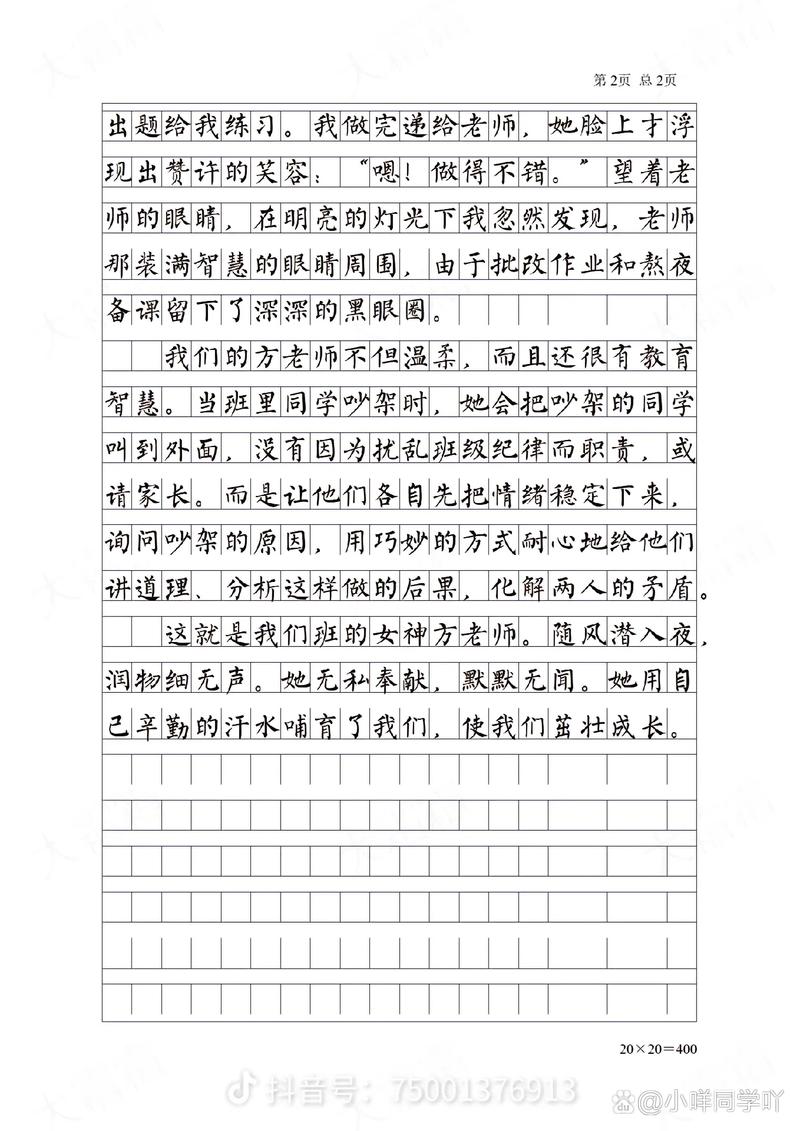 第2页 总2页
出题给我练习。我做完递给老师，她脸上才浮
现出赞许的笑容：“嗯！做得不错。”望着老
师的眼睛，在明亮的灯光下我忽然发现，老师
那装满智慧的眼睛周围，由于批改作业和熬夜
备课留下了深深的黑眼圈。
我们的方老师不但温柔，而且还很有教育
智慧。当班里同学吵架时，她会把吵架的同学
叫到外面，没有因为扰乱班级纪律而职责，或
请家长。而是让他们各自先把情绪稳定下来，
询问吵架的原因，用巧妙的方式耐心地给他们
讲道理、分析这样做的后果，化解两人的矛盾。
这就是我们班的女神方老师。随风潜入夜，
润物细无声。她无私奉献，默默无闻。她用自
己辛勤的汗水哺育了我们，使我们茁壮成长。
20×20=400
抖音号：75001376913
@小咩同学吖